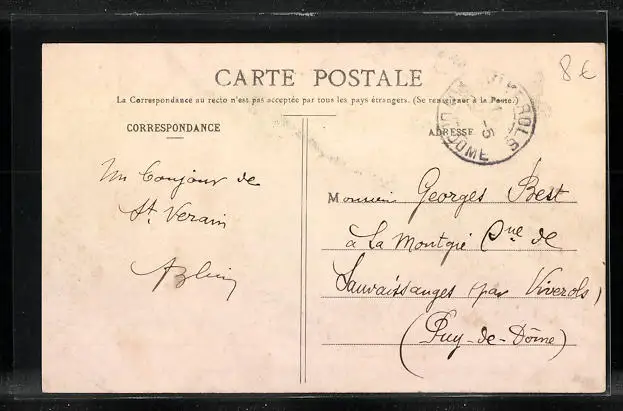 CARTE POSTALE
La Correspondance au recto n'est pas acceptée par tous les pays étrangers. (Se renseigner à la Poste.)
CORRESPONDANCE
ADRESSE
8 €
VIVEROLS
-5
PUY-DE-DOME
Un bonjour de
St. Verain
Monsieur Georges Best
à La Montgie Cne de
Sauvaissanges (par Viverols)
(Puy-de-Dôme)